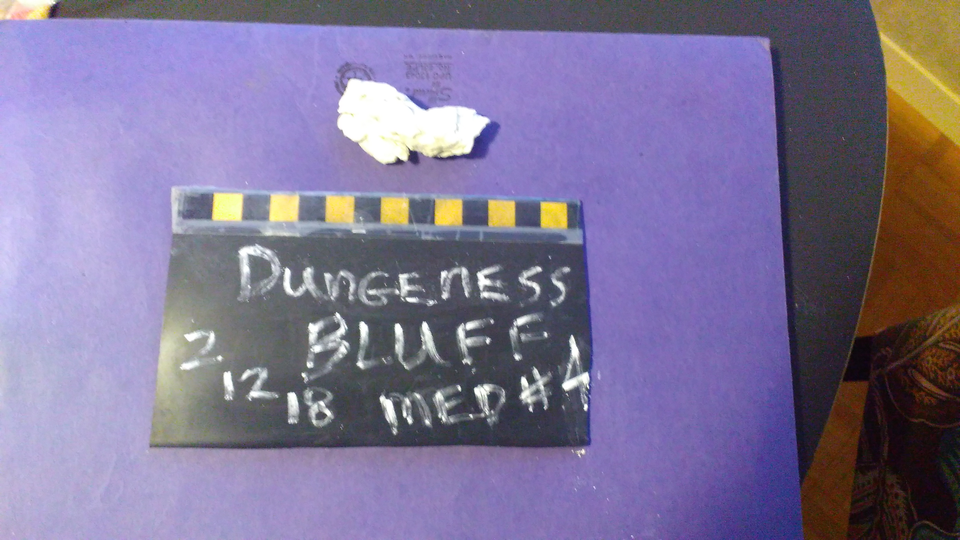 DUnGEnESS
BLUFF
2 12 18 MED #4